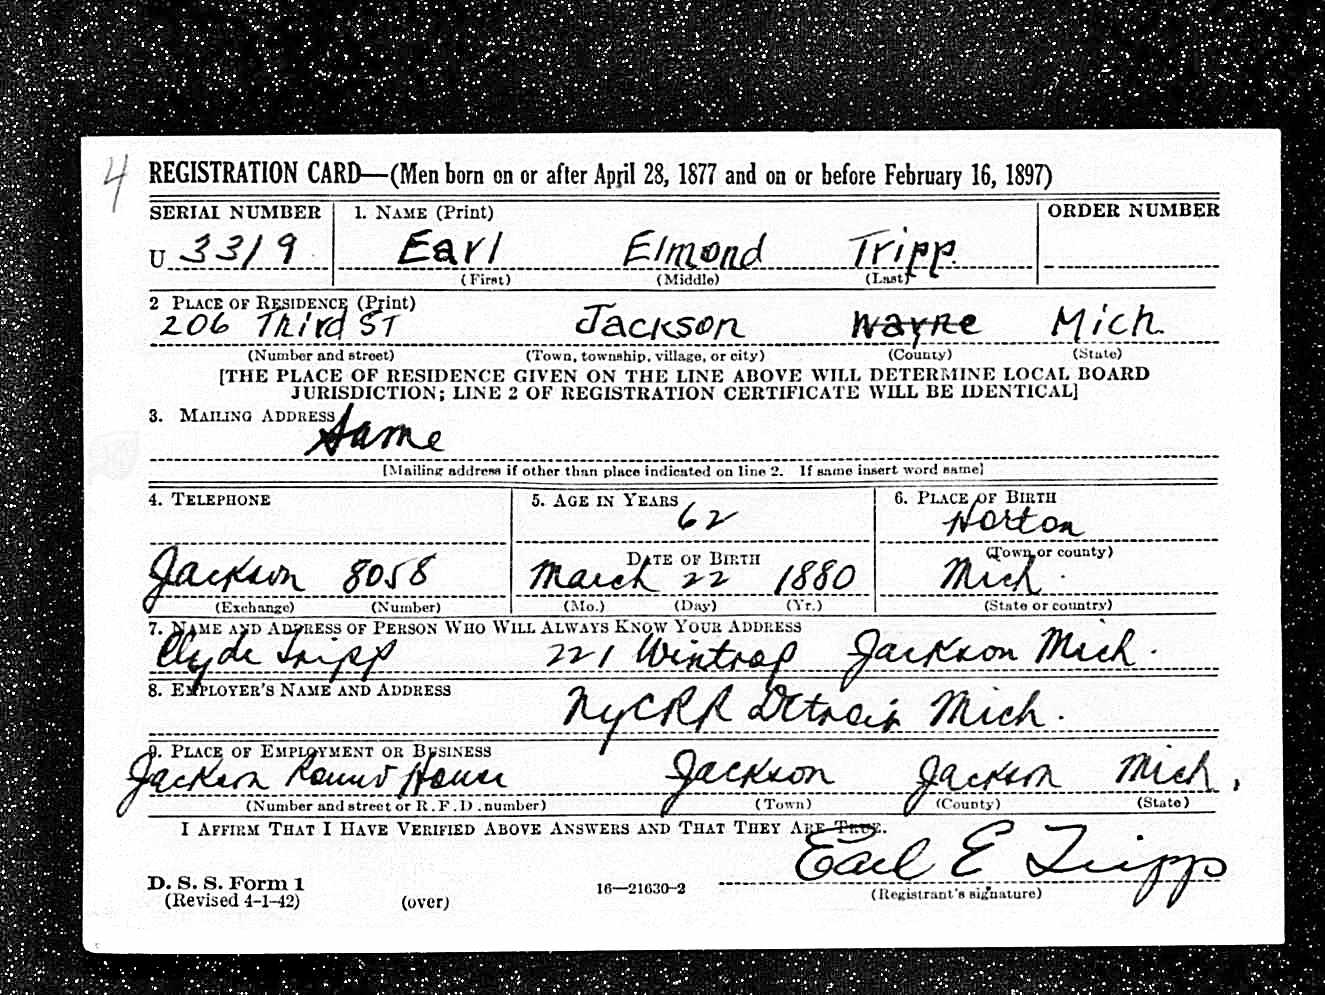 4 REGISTRATION CARD—(Men born on or after April 28, 1877 and on or before February 16, 1897)
SERIAL NUMBER 1. NAME (Print) ORDER NUMBER
U 3319 Earl Elmond Tripp.
(First) (Middle) (Last)
2 PLACE OF RESIDENCE (Print)
206 Third ST Jackson Wayne Mich.
(Number and street) (Town, township, village, or city) (County) (State)
[THE PLACE OF RESIDENCE GIVEN ON THE LINE ABOVE WILL DETERMINE LOCAL BOARD
JURISDICTION; LINE 2 OF REGISTRATION CERTIFICATE WILL BE IDENTICAL]
3. MAILING ADDRESS
Same
[Mailing address if other than place indicated on line 2. If same insert word same]
4. TELEPHONE 5. AGE IN YEARS 6. PLACE OF BIRTH
62 Horton
DATE OF BIRTH (Town or county)
Jackson 8058 March 22 1880 Mich.
(Exchange) (Number) (Mo.) (Day) (Yr.) (State or country)
7. NAME AND ADDRESS OF PERSON WHO WILL ALWAYS KNOW YOUR ADDRESS
Clyde Tripp 221 Wintrop Jackson Mich.
8. EMPLOYER'S NAME AND ADDRESS
NyCRR Detroit Mich.
9. PLACE OF EMPLOYMENT OR BUSINESS
Jackson Round House Jackson Jackson Mich.
(Number and street or R. F. D. number) (Town) (County) (State)
I AFFIRM THAT I HAVE VERIFIED ABOVE ANSWERS AND THAT THEY ARE TRUE.
Earl E Tripp
D. S. S. Form 1 16—21630-2 (Registrant's signature)
(Revised 4-1-42) (over)